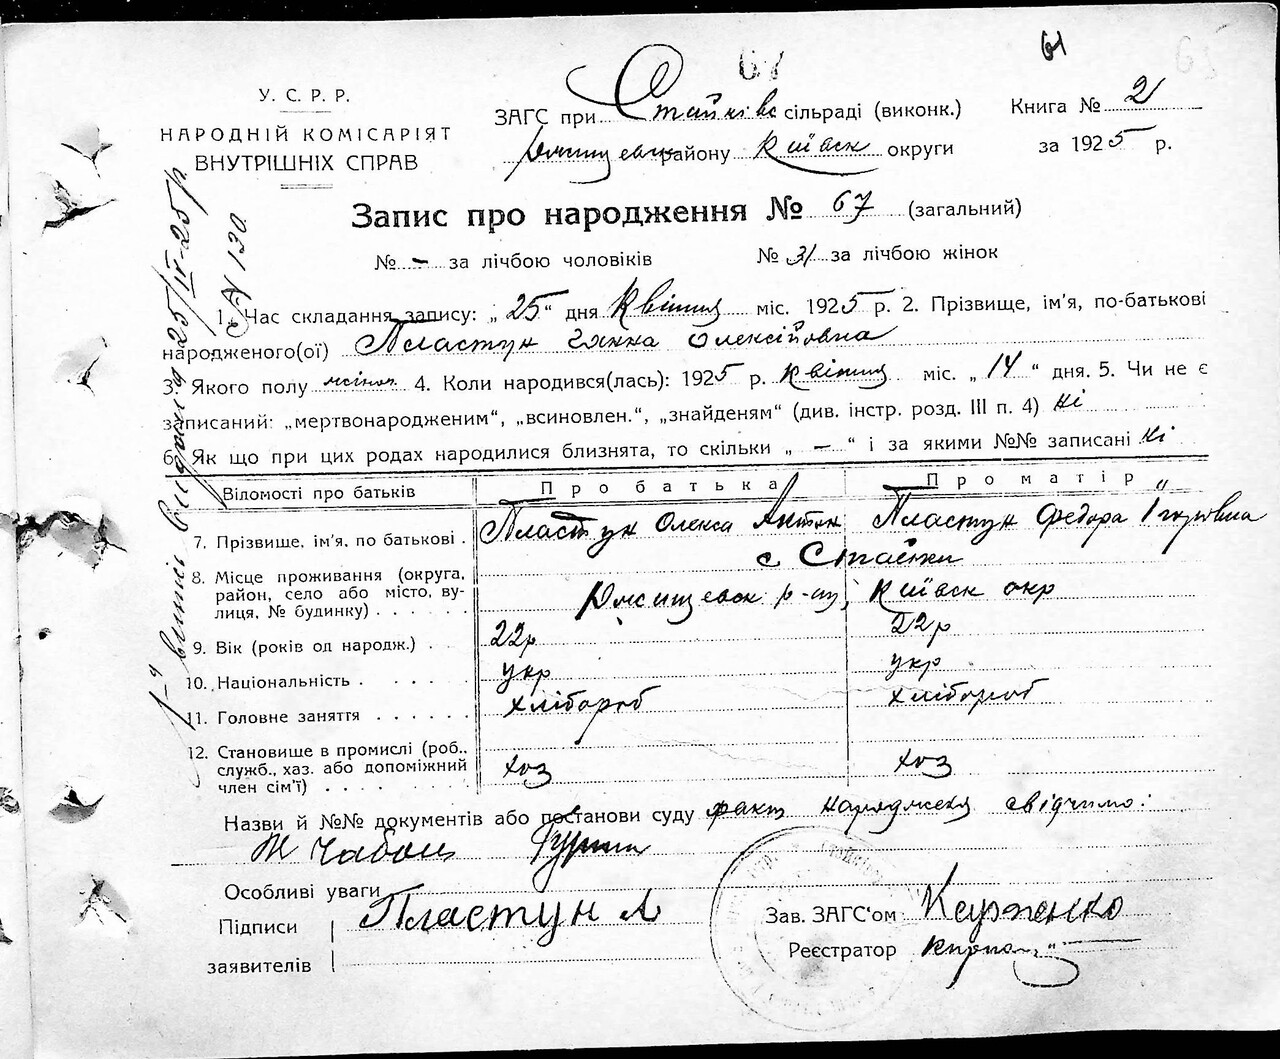 61
67
У. С. Р. Р.
НАРОДНІЙ КОМІСАРІЯТ
ВНУТРІШНІХ СПРАВ
ЗАГС при Стайківс сільраді (виконк.)
району Київськ округи
Книга № 2
за 1925 р.
Запис про народження № 67 (загальний)
№ - за лічбою чоловіків № 31 за лічбою жінок
1-й витяг видан 25/IV-25 р
№ 130
1. Час складання запису: „25“ дня Квітня міс. 1925 р. 2. Прізвище, ім'я, по-батькові
народженого(ої) Пластун Ганна Олексійовна
3. Якого полу жіноч. 4. Коли народився(лась): 1925 р. Квітня міс. „14“ дня. 5. Чи не є
записаний: „мертвонародженим“, „всиновлен.“, „знайденям“ (див. інстр. розд. III п. 4) ні
6. Як що при цих родах народилися близнята, то скільки „-“ і за якими №№ записані ні
Відомості про батьків Про батька Про матір
7. Прізвище, ім'я, по батькові . Пластун Олекса Антон Пластун Федора
с Стайки
8. Місце проживання (округа,
район, село або місто, ву-
лиця, № будинку) . . . . . р-ну, Київськ окр
9. Вік (років од народж.) . . 22р 22р
10. Національність . . . . . укр укр
11. Головне заняття . . . . . . хлібороб хлібороб
12. Становище в промислі (роб.,
служб., хаз. або допоміжний
член сім'ї) . . . . . . . . хоз хоз
Назви й №№ документів або постанови суду факт народження свідчимо:
Чабан
Особливі уваги
Підписи
заявителів
Пластун А
Зав. ЗАГС'ом
Реєстратор